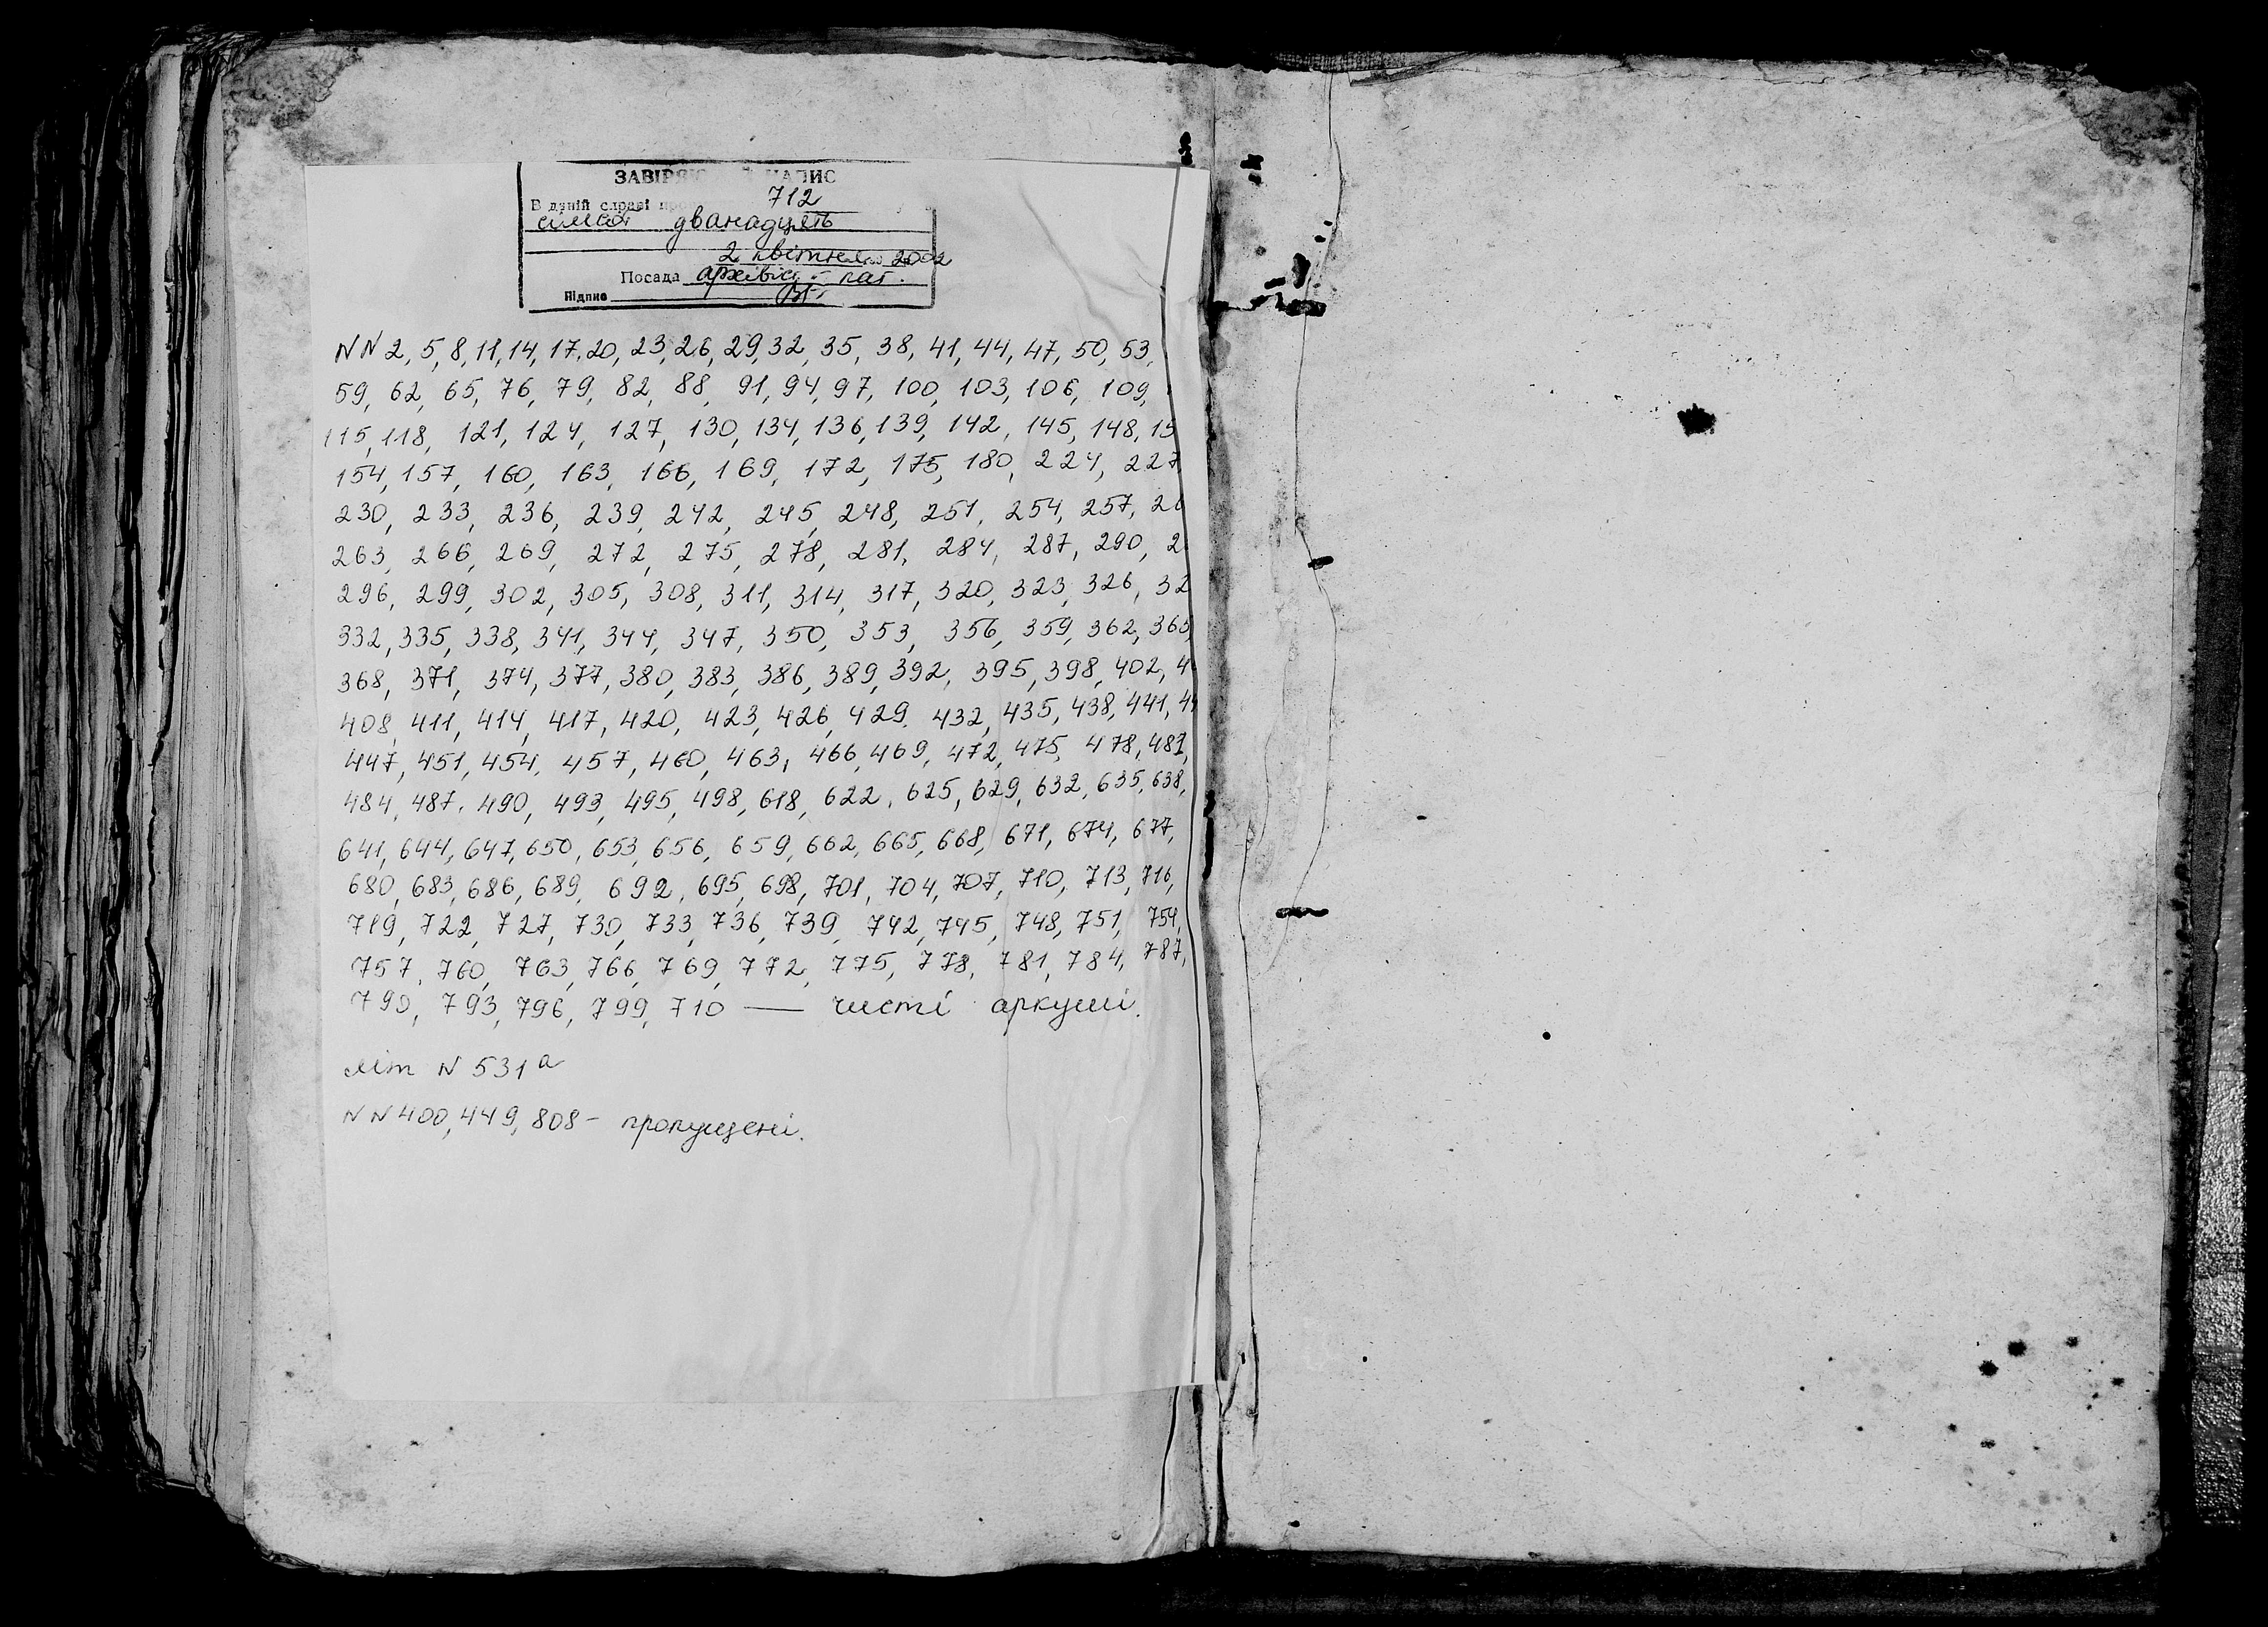 ЗАВІРЯЮЧИЙ НАПИС
В даній справі 712
сімсот дванадцять
2 квітня 2002
Посада архівіст I кат.
Підпис
NN 2, 5, 8, 11, 14, 17, 20, 23, 26, 29, 32, 35, 38, 41, 44, 47, 50, 53,
59, 62, 65, 76, 79, 82, 88, 91, 94, 97, 100, 103, 106, 109,
115, 118, 121, 124, 127, 130, 134, 136, 139, 142, 145, 148, 15
154, 157, 160, 163, 166, 169, 172, 175, 180, 224, 227
230, 233, 236, 239, 242, 245, 248, 251, 254, 257, 26
263, 266, 269, 272, 275, 278, 281, 284, 287, 290, 2
296, 299, 302, 305, 308, 311, 314, 317, 320, 323, 326, 32
332, 335, 338, 341, 344, 347, 350, 353, 356, 359, 362, 365,
368, 371, 374, 377, 380, 383, 386, 389, 392, 395, 398, 402, 4
408, 411, 414, 417, 420, 423, 426, 429, 432, 435, 438, 441, 44
447, 451, 454, 457, 460, 463, 466, 469, 472, 475, 478, 481,
484, 487, 490, 493, 495, 498, 618, 622, 625, 629, 632, 635, 638,
641, 644, 647, 650, 653, 656, 659, 662, 665, 668, 671, 674, 677,
680, 683, 686, 689, 692, 695, 698, 701, 704, 707, 710, 713, 716,
719, 722, 727, 730, 733, 736, 739, 742, 745, 748, 751, 754,
757, 760, 763, 766, 769, 772, 775, 778, 781, 784, 787,
790, 793, 796, 799, 710 — чисті аркуші.
літ N 531а
NN 400, 449, 808 – пропущені.